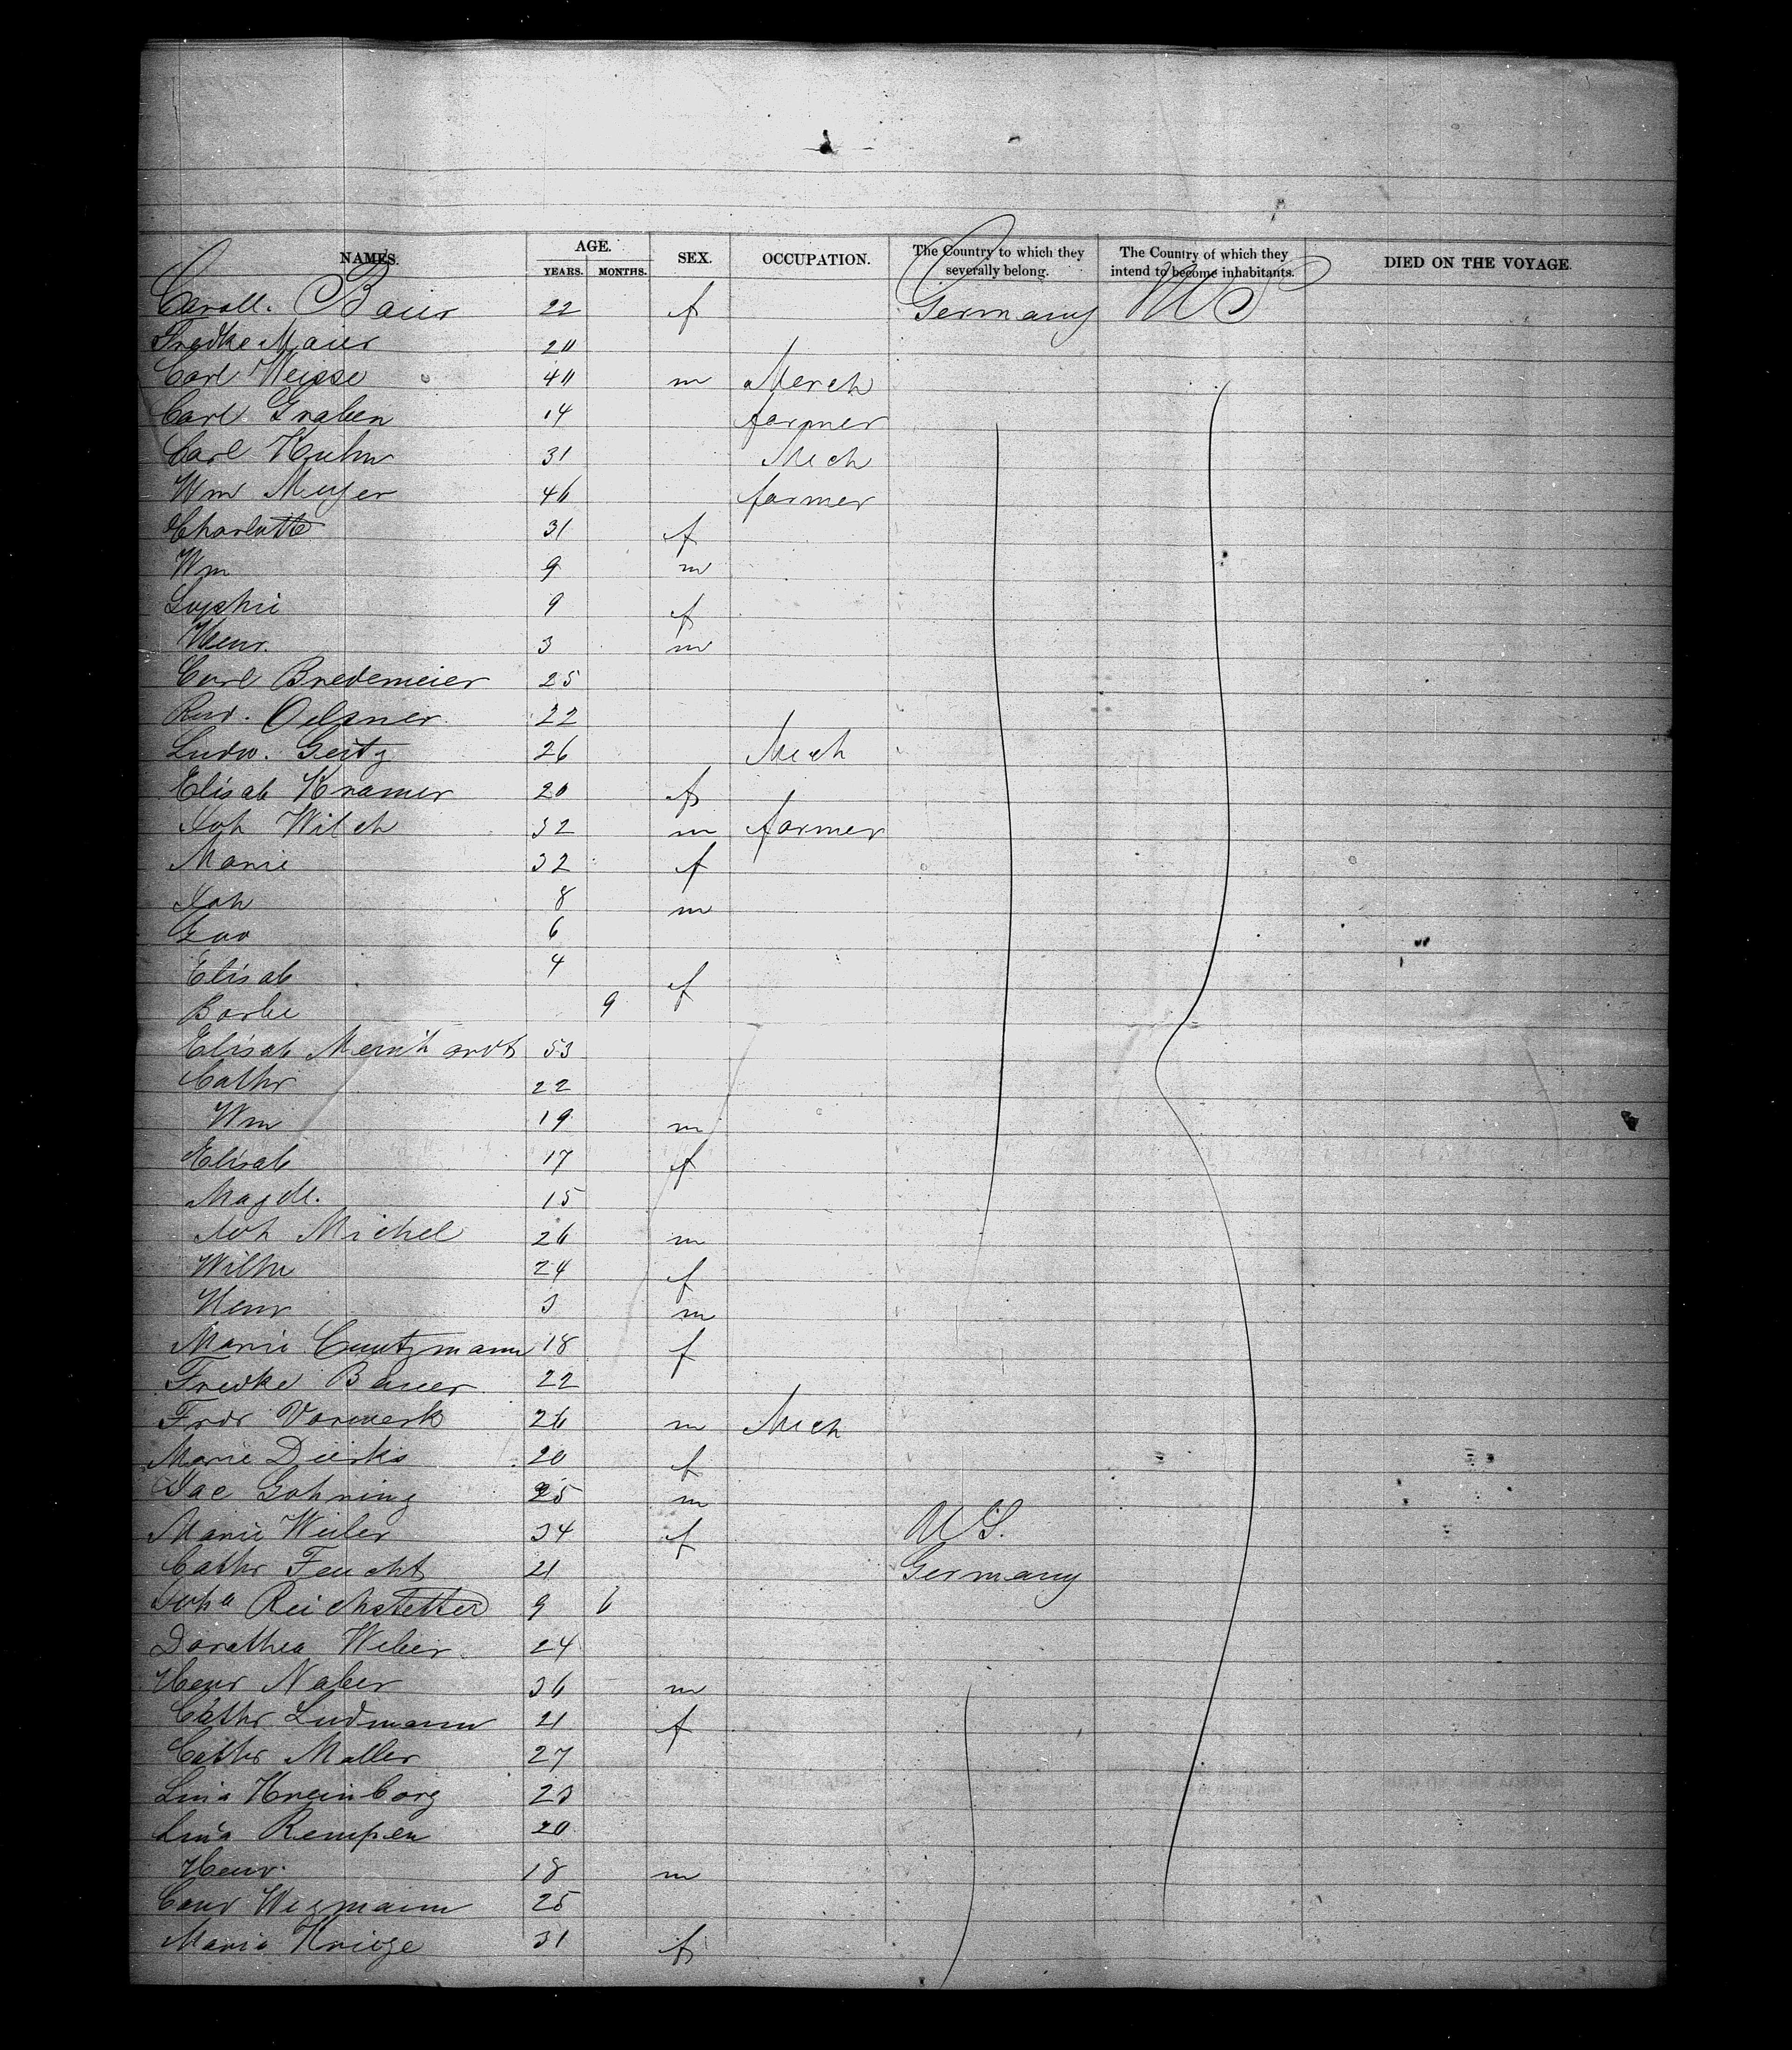 NAMES. AGE. SEX. OCCUPATION. The Country to which they severally belong. The Country of which they intend to become inhabitants. DIED ON THE VOYAGE.
YEARS. MONTHS.
Caroll. Baier 22 f Germany US
Fredke Maier 20
Carl Weisse 40 m Merch
Carl Graben 14 farmer
Carl Kuhn 31 Mech
Wm Meyer 46 farmer
Charlotte 31 f
Wm 9 m
Sophie 9 f
Henr. 3 m
Carl Bredemeier 25
Rud. Oelsner 22
Ludw. Geitz 26 Mech
Elisab Kramer 20 f
Joh Wilch 32 m farmer
Marie 32 f
Joh 8 m
Geo 6
Elisab 4 f
Barbe 9
Elisab Meinhardt 53
Cathr 22
Wm 19 m
Elisab 17 f
Magdl. 15
Joh Michel 26 m
Wilhe 24 f
Henr 3 m
Marie Cuntzmann 18 f
Fredke Bauer 22
Frdr Vorwerk 26 m Mech
Marie Dierks 20 f
Jac Gohring 25 m
Marie Weiler 34 f US.
Cathr Feucht 21 Germany
Joha Reichstetter 9 6
Dorathea Weber 24
Henr Naber 36 m
Cathr Ludmann 21 f
Cathr Moller 27
Lina Kreinborg 23
Lina Rempen 20
Henr. 18 m
Conr Wegmann 25
Maria Kriege 31 f